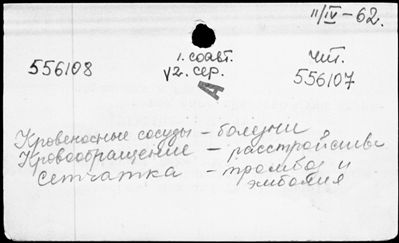 11/IV-62.
1. соавт.
√2. сер.
чит.
556108
556107
А
Кровеносные сосуды - болезни
Кровообращение - расстройства
Сетчатка - тромбоз и
эмболия